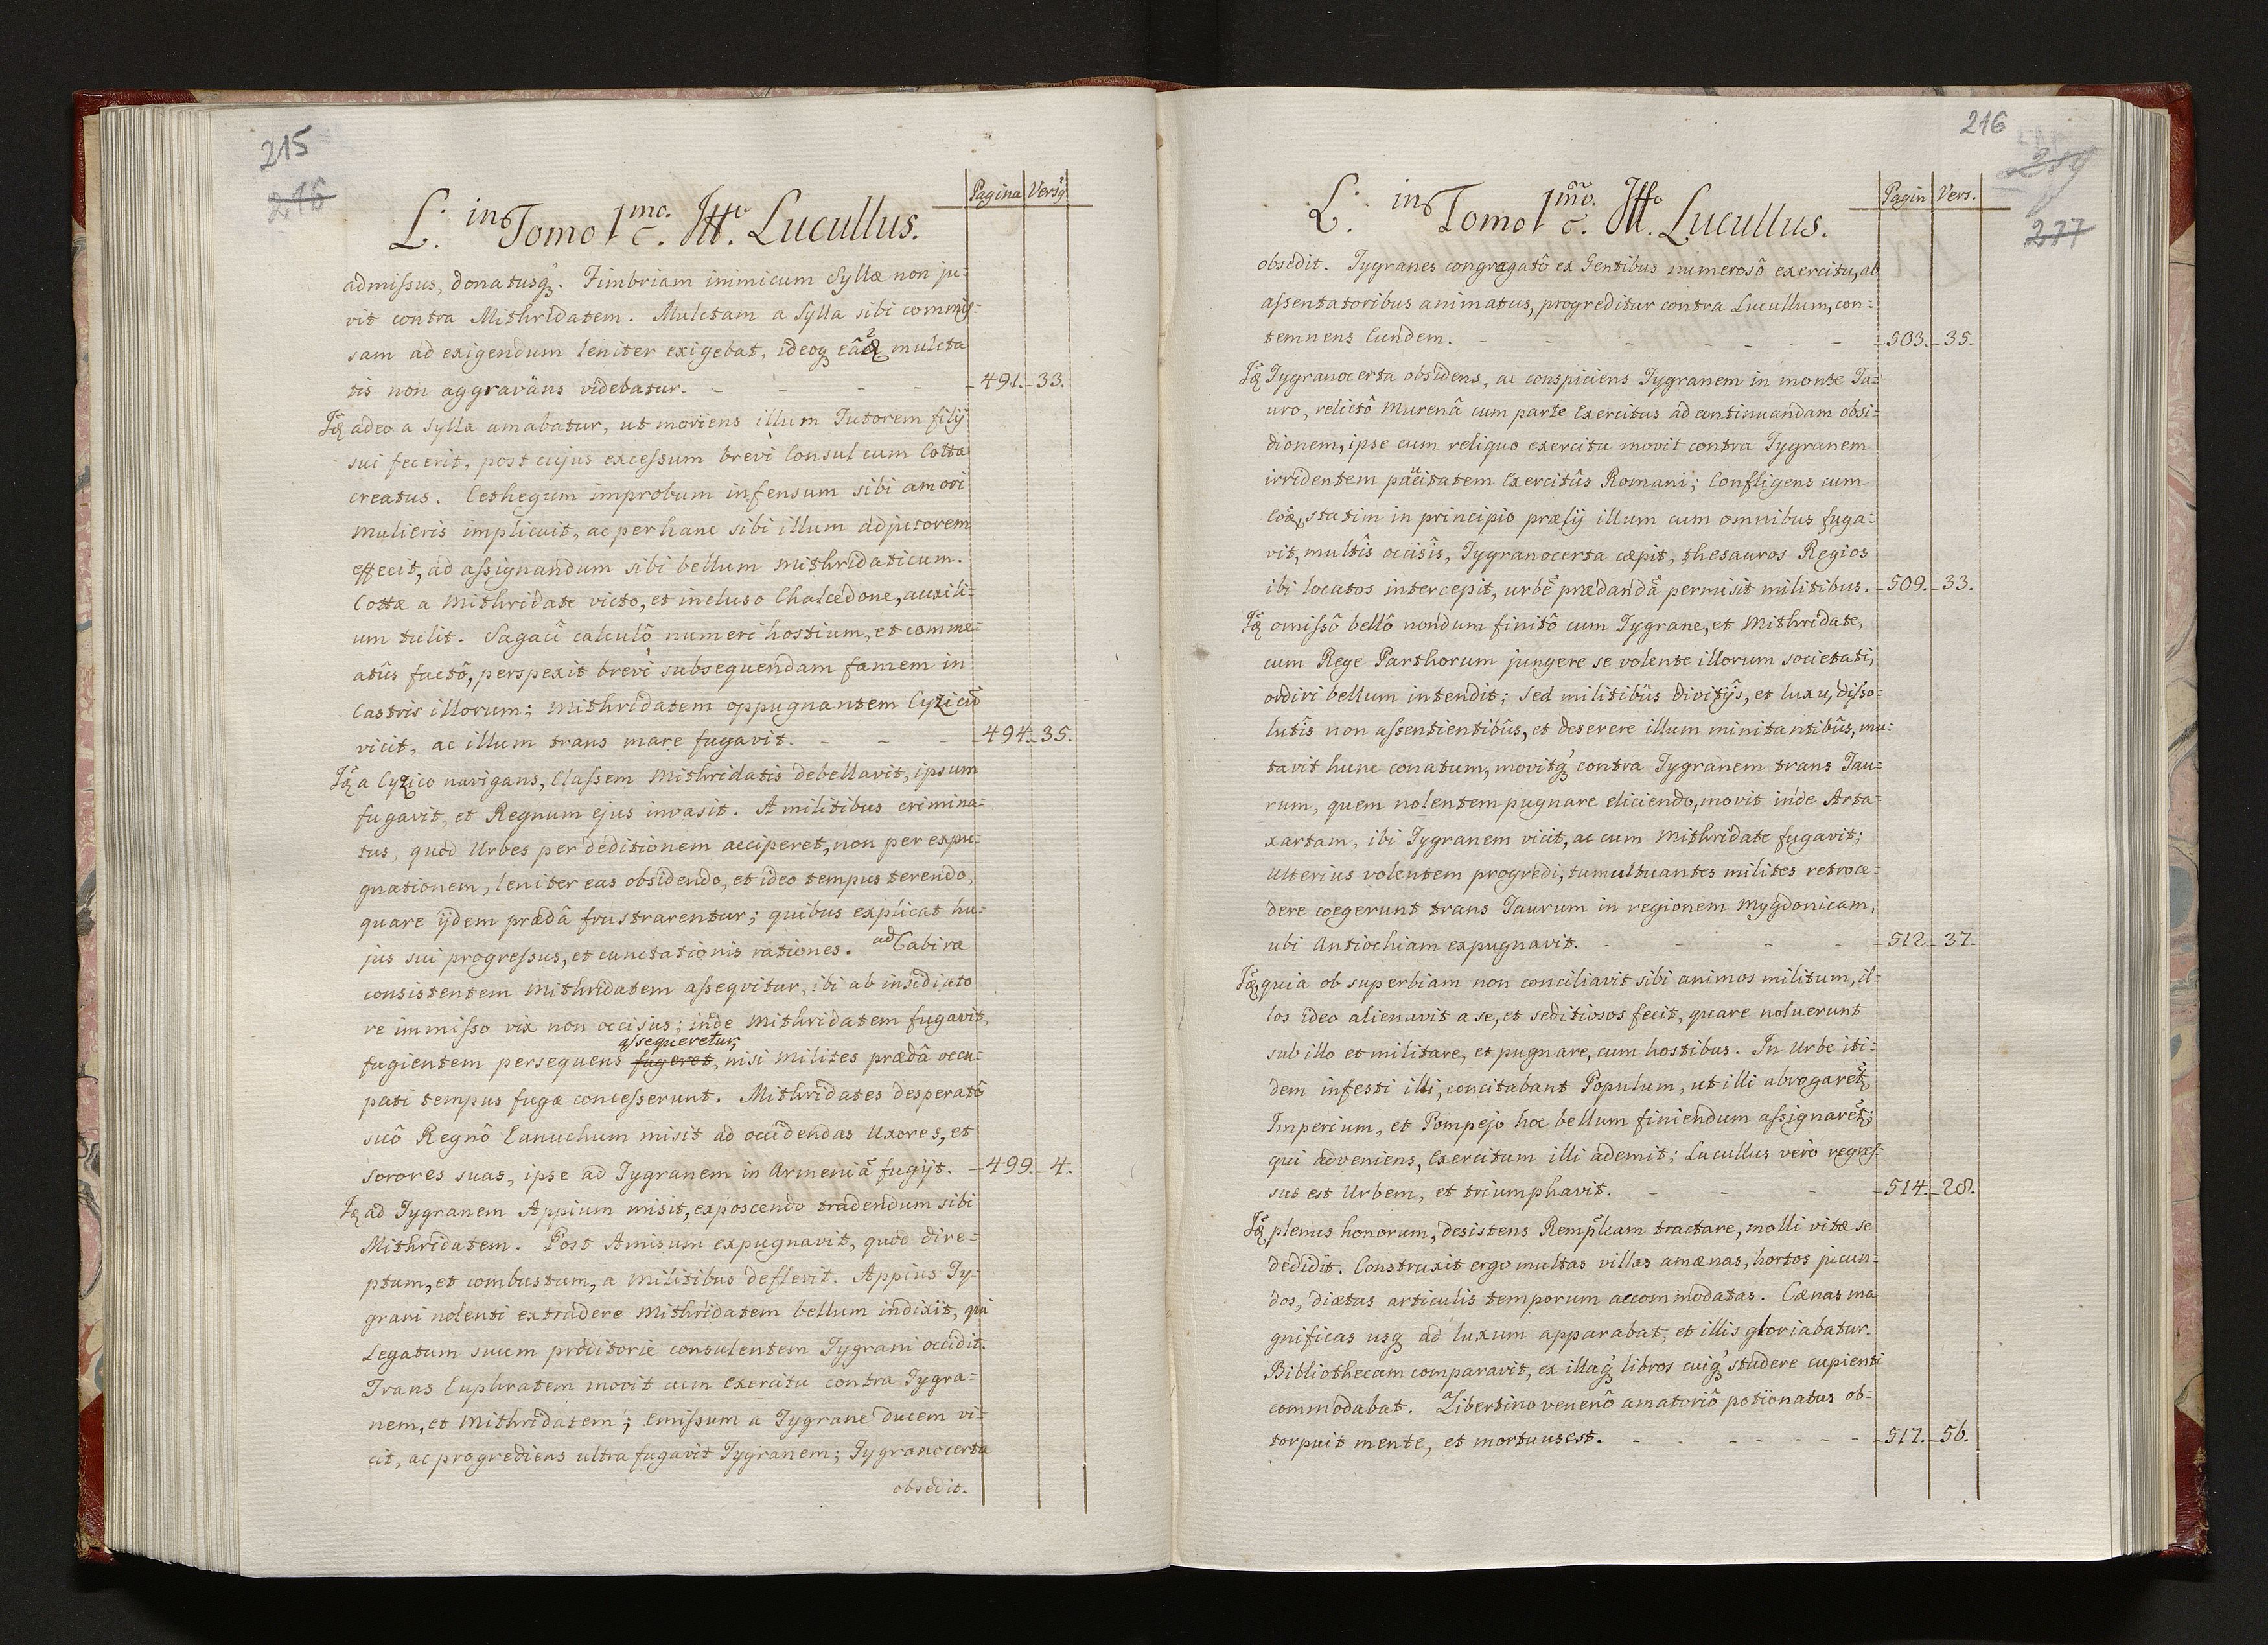 215
216
Pagina Versq̃
L. in Tomo 1mo. c. Lucullus.
admissus, donatusq́. Fimbriam inimicum Syllæ non ju-
vit contra Mithridatem. Mulctam a Sylla sibi commis-
sam ad exigendum leniter exigebat, ideoq mulcta
tis non aggravans videbatur. - - - - - 491. - 33.
adeo a Sylla amabatur, ut moriens illum Tutorem filij
sui fecerit, post cujus excessum brevì Consul cum Cotta
creatus. Cethegum improbum infensum sibi amori
mulieris implicuit, ac per hanc sibi illum adjutorem
effecit, ad assignandum sibi bellum Mithridaticum.
Cottæ a Mithridate victo, et incluso Chalcedone, auxili-
um tulit. Sagacî calculô numeri hostium, et comme-
atûs factô, perspexit brevì subsequendam famem in
Castris illorum; Mithridatem oppugnantem Cyzicũ
vicit, ac illum trans mare fugavit. - - - 494. - 35.
a Cyzico navigans, Classem Mithridatis debellavit, ipsum
fugavit, et Regnum ejus invasit. A militibus crimina-
tus, quod Urbes per deditionem acciperet, non per expu-
gnationem, leniter eas obsidendo, et ideo tempus terendo,
quare ijdem prædâ frustrarentur; quibus explicat hu-
jus sui progressus, et cunctationis rationes. ad Cabira
consistentem Mithridatem assequitur, ibi ab insidiato
re immisso vix non occisus; inde Mithridatem fugavit,
assequeretur,
fugientem persequens fugeret, nisi milites prædâ occu-
pati tempus fugæ concesserunt. Mithridates desperatô
suô Regnô Eunuchum misit ad occidendas Uxores, et
sorores suas, ipse ad Tygranem in Armeniã fugijt. - 499. - 4.
ad Tygranem Appium misit, exposcendo tradendum sibi
Mithridatem. Post Amisum expugnavit, quod dire-
ptum, et combustum, a militibus deflevit. Appius Ty-
grani nolenti extradere Mithridatem bellum indixit, qui
Legatum suum proditoriè consulentem Tygrani occidit.
Trans Euphratem movit cum Exercitu contra Tygra-
nem, et Mithridatem; Emissum a Tygrane Ducem vi-
cit, ac progrediens ultra fugavit Tygranem; Tygranocerta
obsedit.
216
219
277
Pagin Vers.
L. in Tomo 1mo. c. Lucullus.
obsedit. Tygranes congregatô ex Gentibus numerosô exercitu, ab
assentatoribus animatus, progreditur contra Lucullum, con-
temnens Eundem. - - - - - - - 503. - 35.
Tygranocerta obsidens, ac conspiciens Tygranem in monte Ta-
uro, relictô Murenâ cum parte Exercitus ad continuandam obsi-
dionem, ipse cum reliquo exercitu movit contra Tygranem
irridentem paucitatem Exercitûs Romani; Confligens cum
statim in principio prælij illum cum omnibus fuga-
vit, multîs occisîs, Tygranocerta cæpit, thesauros Regios
ibi locatos intercepit, urbẽ prædandã permisit militibus. - 509. - 33.
omissô bellô nondum finitô cum Tygrane, et Mithridate,
cum Rege Parthorum jungere se volente illorum societati,
ordiri bellum intendit; sed militibûs divitijs, et luxu, disso-
lutîs non assentientibûs, et deserere illum minitantibûs, mu-
tavit hunc conatum, movitq́ contra Tygranem trans Tau-
rum, quem nolentem pugnare eliciendo, movit inde Arta-
xartam, ibi Tygranem vicit, ac cum Mithridate fugavit;
Ulterius volentem progredi, tumultuantes milites retroce-
dere coegerunt trans Taurum in regionem Mygdonicam,
ubi Antiochiam expugnavit. - - - - 512. - 37.
quia ob superbiam non conciliavit sibi animos militum, il-
los ideo alienavit a se, et seditiosos fecit, quare noluerunt
sub illo et militare, et pugnare, cum hostibus. In Urbe iti-
dem infesti illi, concitabant Populum, ut illi abrogaret̃
Imperium, et Pompejo hoc bellum finiendum assignaret̃;
qui adveniens, Exercitum illi ademit; Lucullus verò regres-
sus est Urbem, et triumphavit. - - - 514. - 28.
plenus honorum, desistens Rempl̃cam tractare, molli vitæ se
dedidit. Construxit ergo multas villas amænas, hortos jucun-
dos, diætas articulis temporum accommodatas. Cænas ma
gnificas usq ad luxum apparabat, et illis gloriabatur.
Bibliothecam comparavit, ex illaq́ libros cuiq́ studere cupienti
commodabat. a Libertino venenô amatoriô potionatus ob-
torpuit mente, et mortuus est. - - - - - - - 517. - 56.